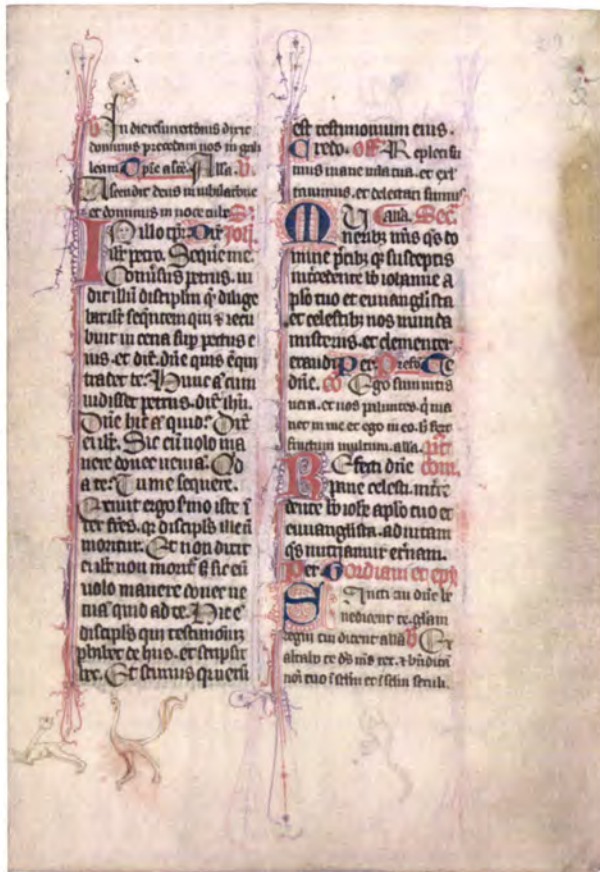 dominus precedam uos in gali
leam
Ascendit deus in iubilacione
et dominus in uoce tube
In illo tpr. Dixit
ihc petro. Sequere me.
Conuersus petrus. ui
dit illū discipłm q̄ dilige
bat ihc seqn̄tem qui & recu
buit in cena sup pectus e
ius. et dix̄. dn̄e quis ē qui
tradet te. Hunc ā cum
uidisset petrus. dix̄ ihū.
Dn̄e hic ā quid. Dix̄
ei ihc. Sic eū uolo ma
nere donec ueniā. Qd
a te. Tu me sequere.
Exiuit ergo s̄mo iste ī
ter fr̄es. q̄ discipłs ille n̄
moritur. Et non dixit
ei ihc non morit̄ s̄ sic eū
uolo manere donec ue
niā quid ad te. Hic ē
discipłs qui testimoniū
phibet de hijs. et scripsit
hec. Et scimus qr uerū
est testimonium eius.
Credo. off. Repleti su
mus mane mīa tua. et exl
tauimus. et delectati sumus
alla. Sec̄.
Muneribȝ nr̄is qs do
mine p̄cibȝ qȝ susceptis
int̄cedente bō iohanne a
pło tuo et euuangłista
et celestibȝ nos munda
misterijs. et clementer
exaudi. Per. Prefo. Te
dn̄e. co Ego sum uitis
uera. et uos palmites. q̄ ma
net in me et ego in eo. h̄ fert
fructum multum. alla. p̄t
com̄.
Refecti dn̄e
pane celesti. int̄ce
dente bō ioħe apło tuo et
euuangłista. ad uitam
qs nutriamur et̄nam.
Per. Gordiani et eph
Sancti tui dn̄e be
nedicent te. głam
regni tui dicent alla V Ex
altabo te ds̄ ms̄ rex. & bn̄dicā
noī tuo ī sc̄lm et ī sc̄lm seculi.